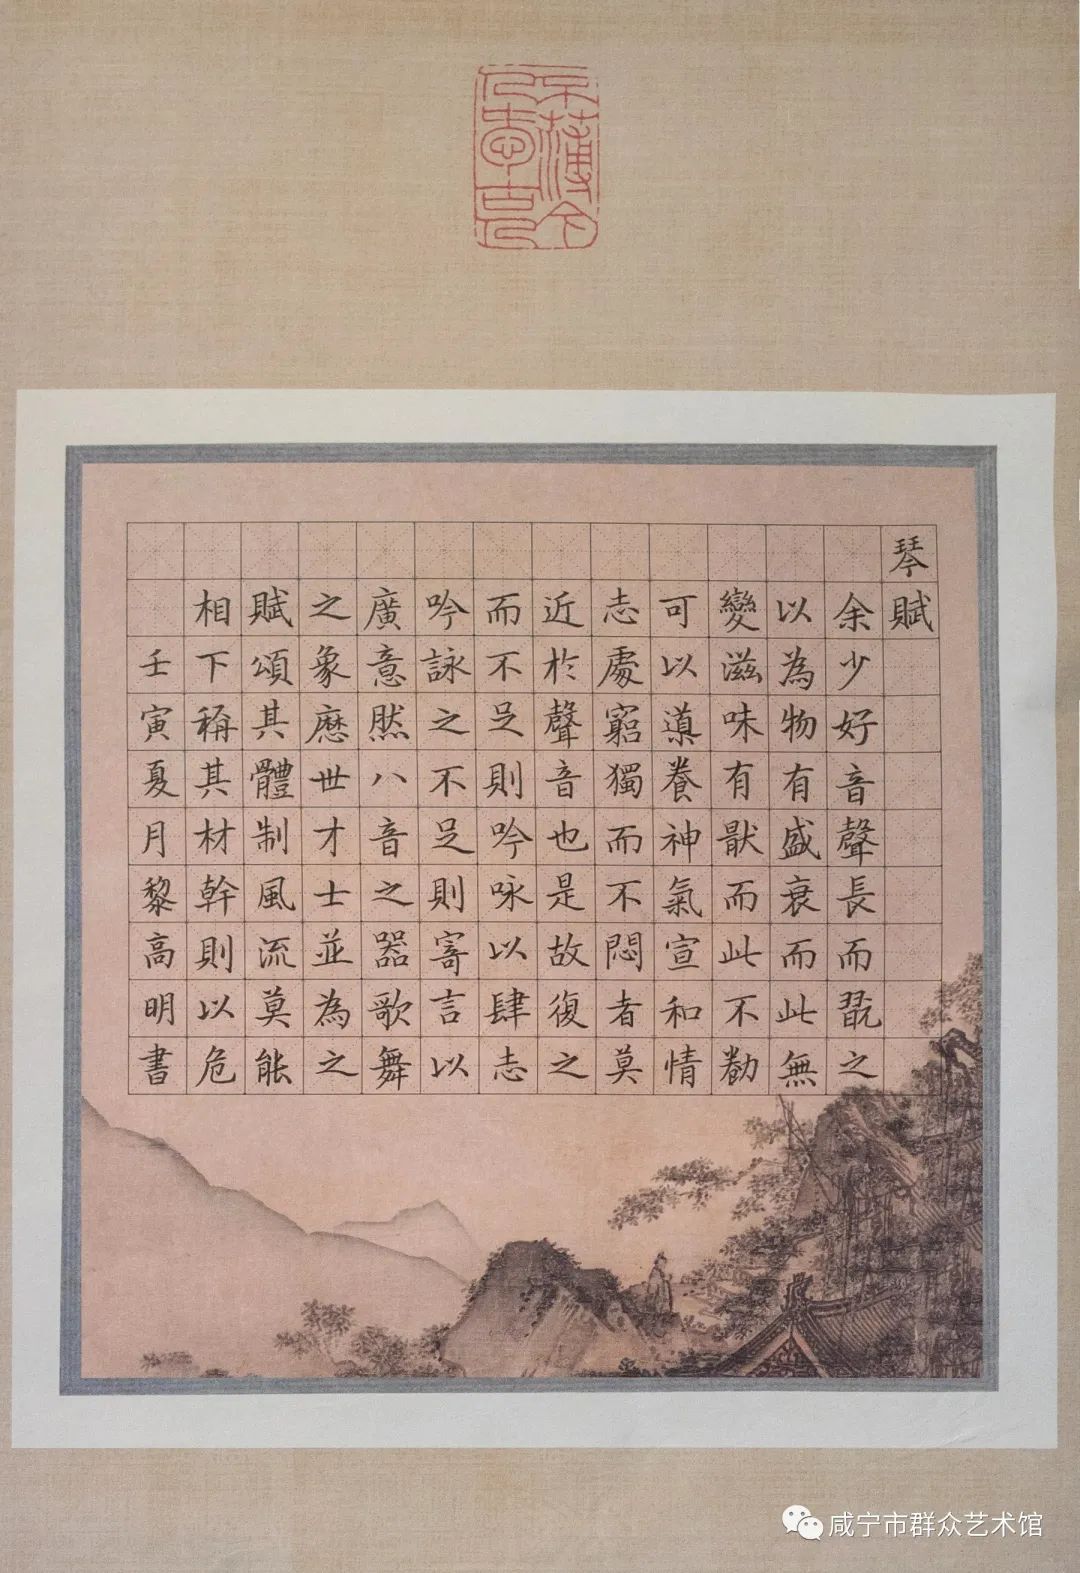 不薄今
人愛古人
琴賦
余少好音聲長而翫之
以為物有盛衰而此無
變滋味有猒而此不勌
可以導養神氣宣和情
志處窮獨而不悶者莫
近於聲音也是故復之
而不足則吟咏以肆志
吟詠之不足則寄言以
廣意然八音之器歌舞
之象歷世才士並為之
賦頌其體制風流莫能
相下稱其材幹則以危
壬寅夏月黎高明書
咸宁市群众艺术馆